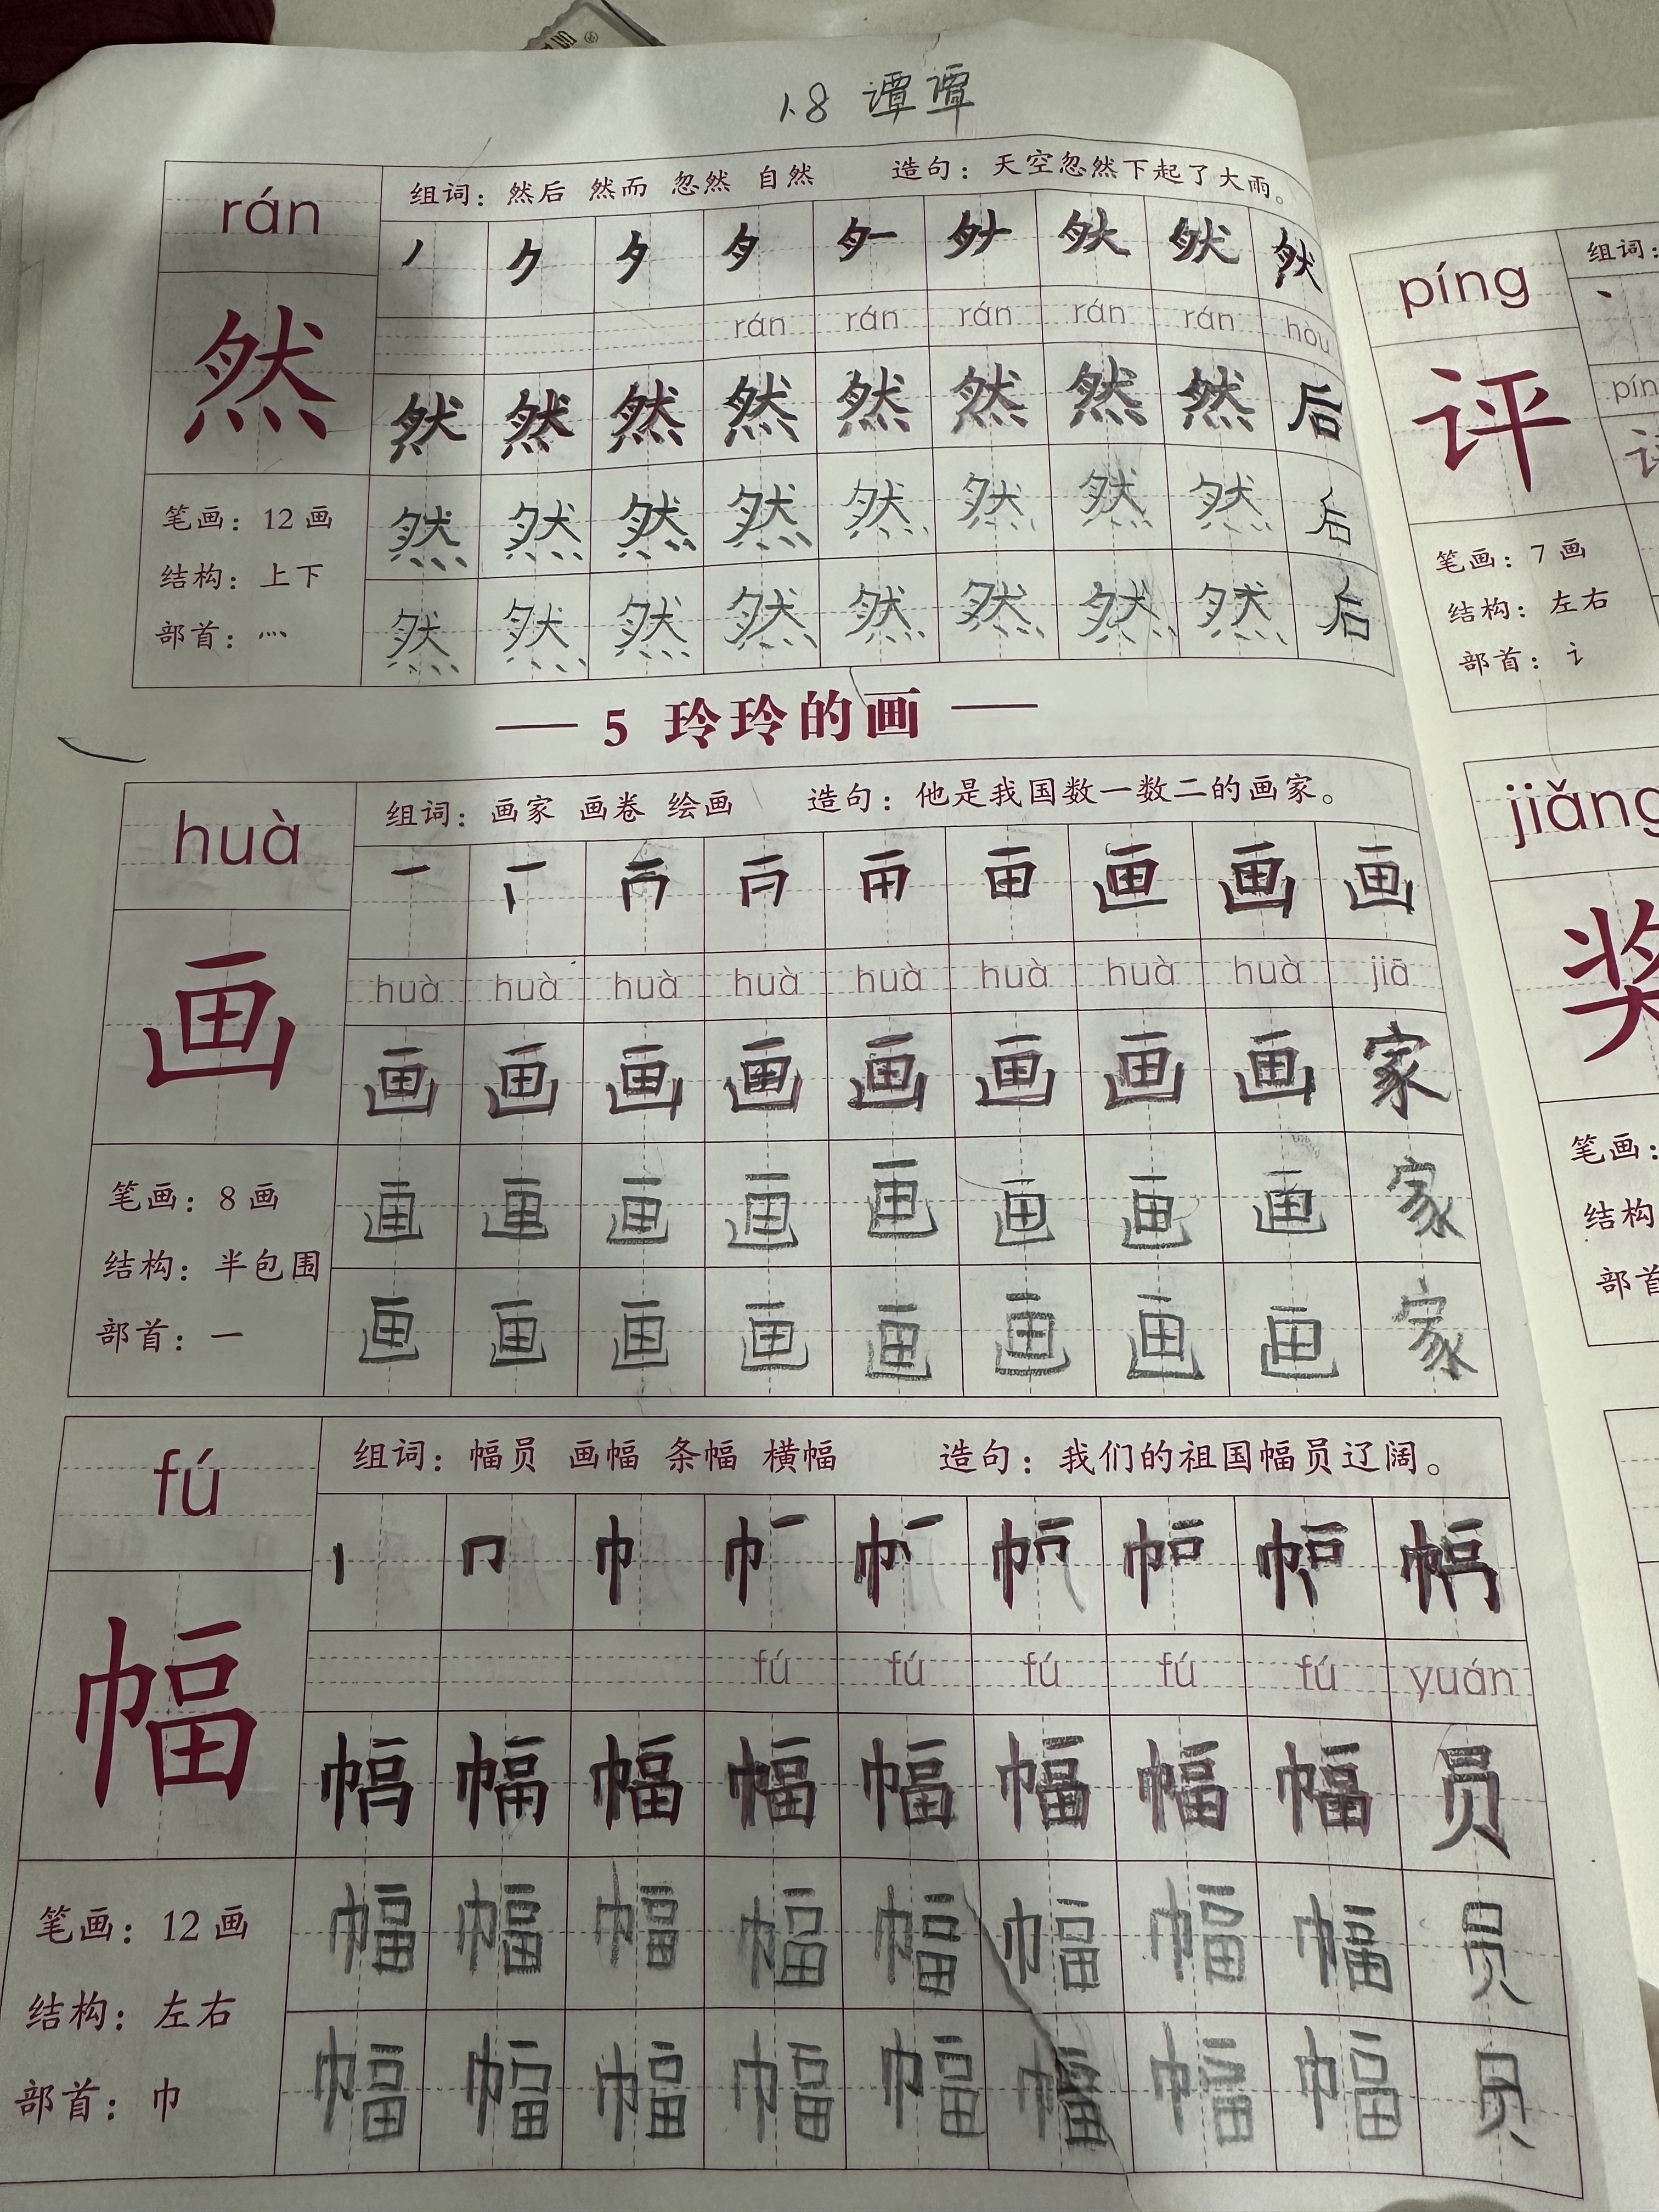 1.8 谭谭
rán
组词：然后 然而 忽然 自然 造句：天空忽然下起了大雨。
rán rán rán rán rán hòu
然
然 然 然 然 然 然 然 然 后
然 然 然 然 然 然 然 然 后
然 然 然 然 然 然 然 然 后
笔画：12 画
结构：上下
部首：灬
5 玲玲的画
huà
组词：画家 画卷 绘画 造句：他是我国数一数二的画家。
huà huà huà huà huà huà huà huà jiā
画
画 画 画 画 画 画 画 画 家
画 画 画 画 画 画 画 画 家
画 画 画 画 画 画 画 画 家
笔画：8 画
结构：半包围
部首：一
fú
组词：幅员 画幅 条幅 横幅 造句：我们的祖国幅员辽阔。
fú fú fú fú fú yuán
幅
幅 幅 幅 幅 幅 幅 员
幅 幅 幅 幅 幅 幅 幅 幅 员
幅 幅 幅 幅 幅 幅 幅 幅 员
笔画：12 画
结构：左右
部首：巾
píng
组词：
评
笔画：7 画
结构：左右
部首：讠
jiǎng
笔画：
结构
部首